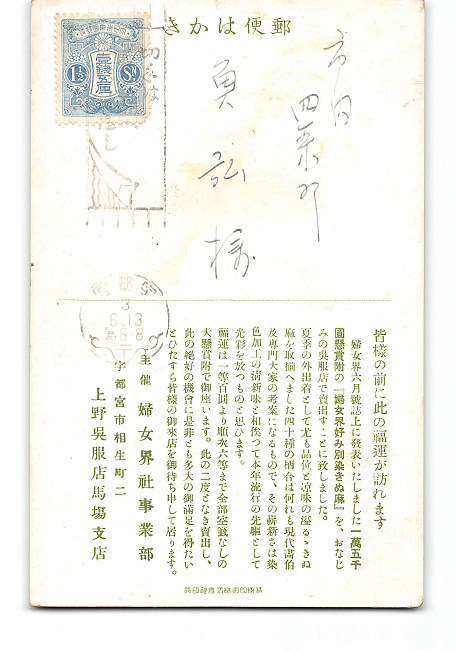 郵便はかき
1½ Sn
壹錢五厘
市内
四条町
皆様の前に此の福運が訪れます
婦女界六月號誌上に發表いたしました一萬五千
圓懸賞附の『婦女界好み別染きぬ麻』を、おなじ
みの呉服店で賣出すことに致しました。
夏季の外出着として尤も品位と凉味の溢るゝきぬ
麻を取揃へました四十種の柄合は何れも現代畵伯
及專門大家の考案になるもので、その嶄新さは染
色加工の淸新味と相俟つて本年流行の先驅として
光彩を放つものと思ひます。
福運は一等百圓より順次六等まで全部空籤なしの
大懸賞附で御座います。此の二度となき賣出し、
此の絶好の機會に是非とも多大の御滿足を得たい
とひたすら皆様の御來店を御待ち申して居ります。
主催 婦女界社事業部
宇都宮市相生町二
上野呉服店馬場支店